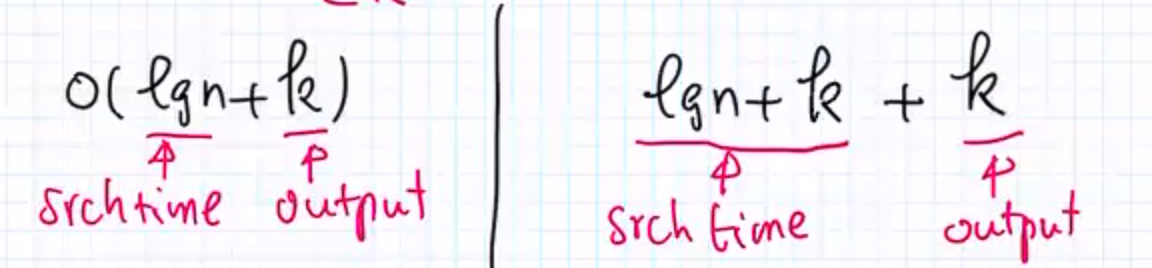 O(lgn+k)
srchtime output
lgn+k + k
srch time output